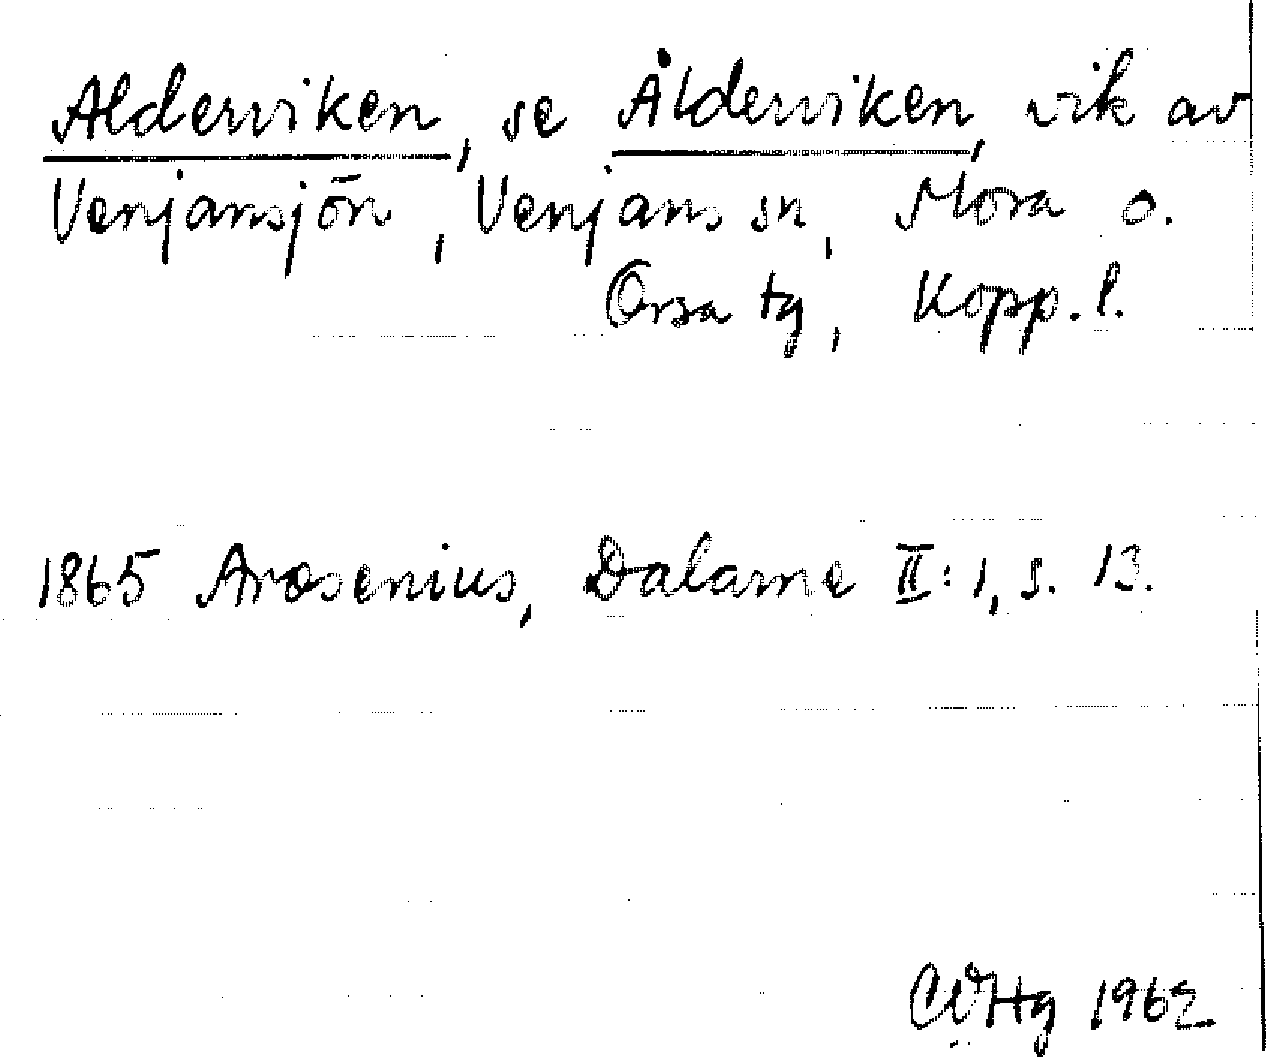 Alderviken, se Ålderviken, vik av
Venjansjön, Venjans sn, Mora o.
Orsa tg, Kopp. l.
1865 Arosenius, Dalarne II: 1, s. 13.
CWHg 1962